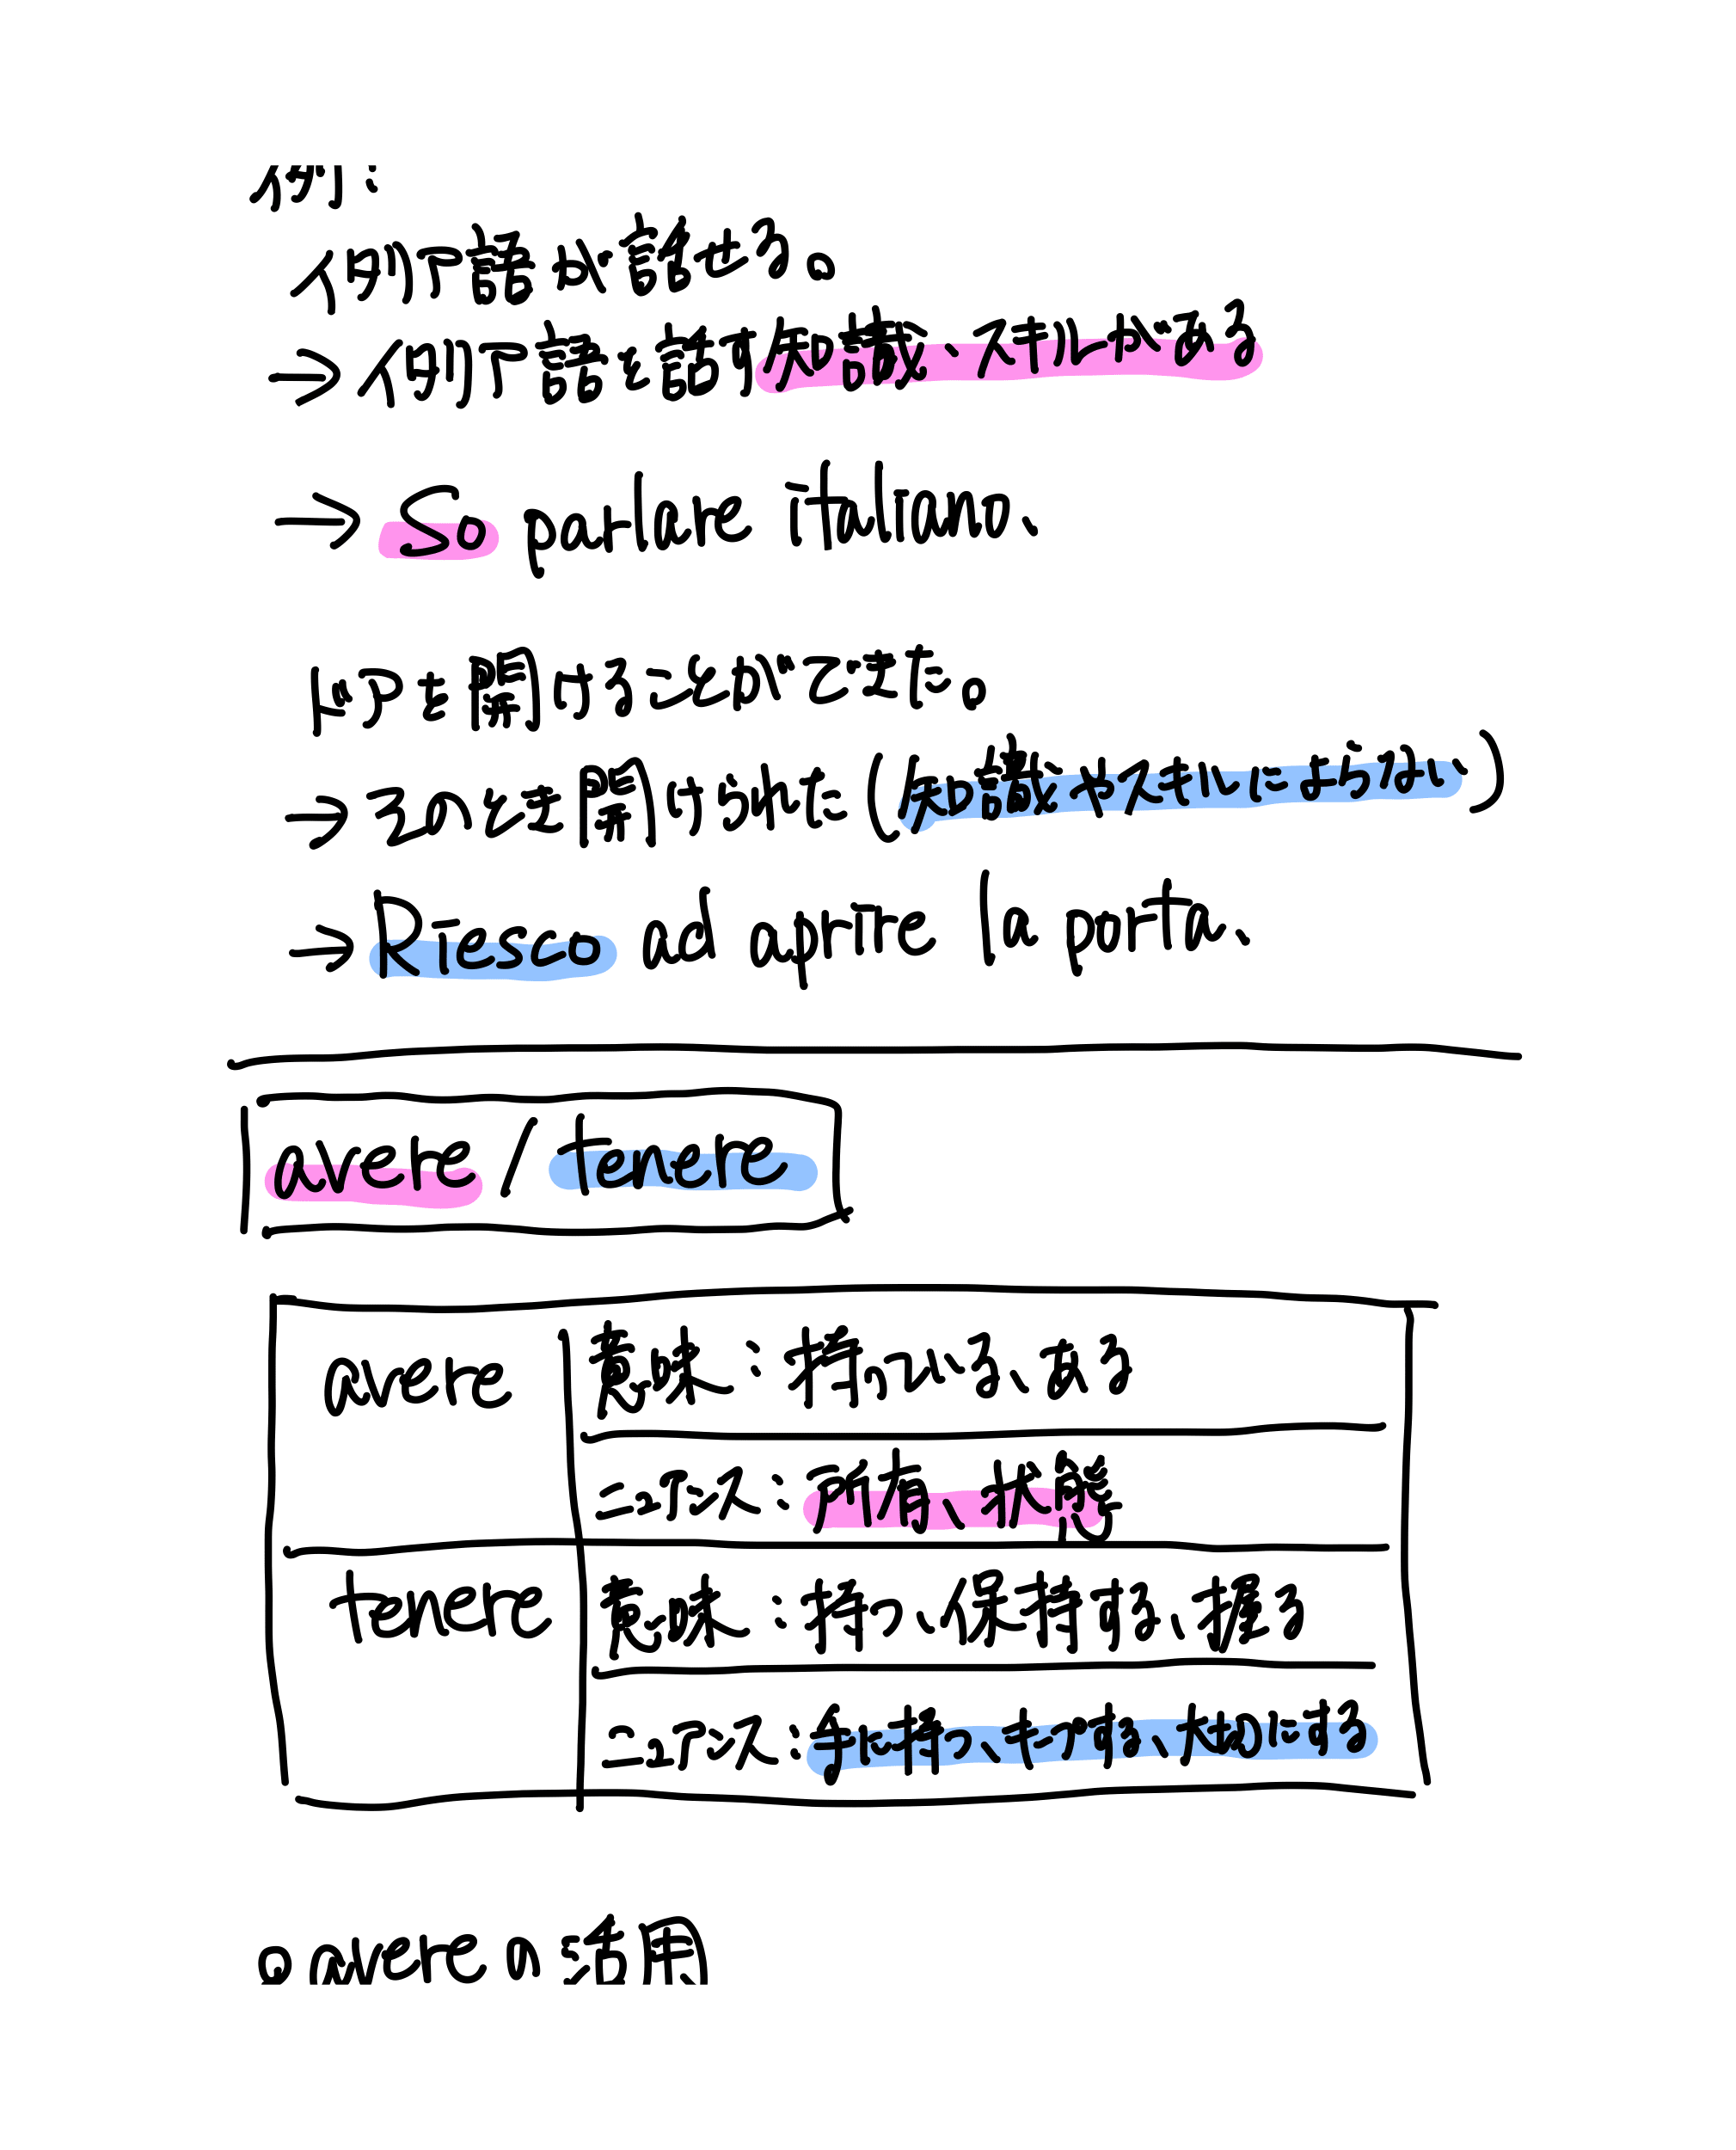 例:
イタリア語が話せる。
⇒ イタリア語を話す知識、スキルがある
→ So parlare italiano.
ドアを開けることができた。
⇒ そのとき開けられた (知識やスキルによらない)
→ Riesco ad aprire la porta.
avere / tenere
avere 意味:持っている、ある
ニュアンス:所有、状態
tenere 意味:持つ、保持する、握る
ニュアンス:手に持つ、キープする、大切にする
○ avere の活用